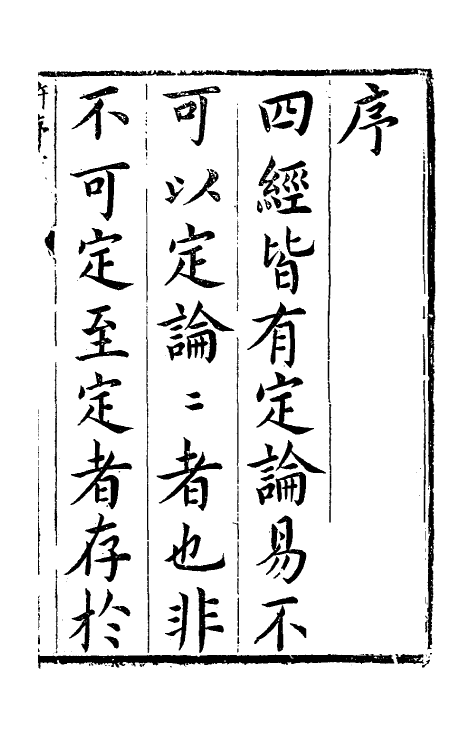 序
四經皆有定論易不
可以定論〻者也非
不可定至定者存於